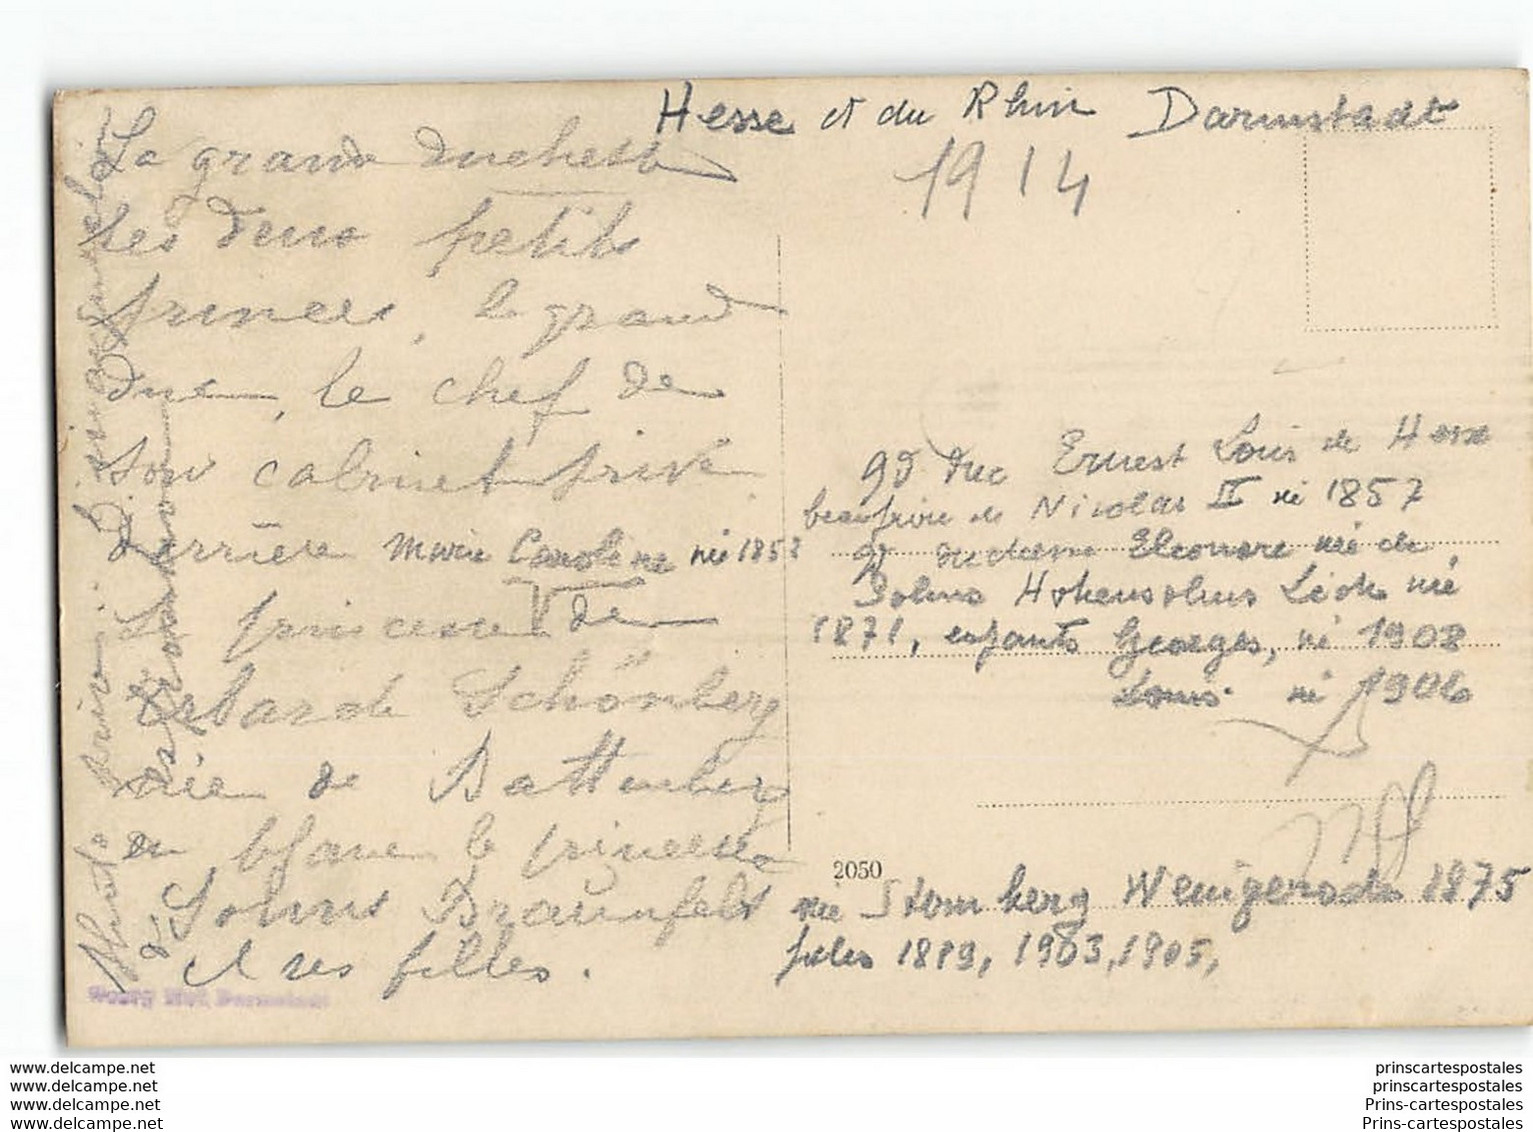 Hesse et du Rhin Darmstadt
1914
La grande duchesse
ses deux petits
princes, le grand
duc, le chef de
son cabinet privé
derrière Marie Caroline née 1852
La princesse de
Erbach Schönberg
née de Battenberg
en blanc la princesse
Solms Braunfels
et ses filles.
Photo
Georg Hof, Darmstadt
gd duc Ernest Louis de Hesse
beaufrère de Nicolas II né 1857
gd duchesse Eleonore née de
Solms Hohensolms Lich né
1871, enfants Georges, né 1908
Louis né 1906
2050
née Stomberg Wenigerode 1875
filles 1889, 1903, 1905,
www.delcampe.net
www.delcampe.net
www.delcampe.net
www.delcampe.net
prinscartespostales
prinscartespostales
Prins-cartespostales
Prins-cartespostales